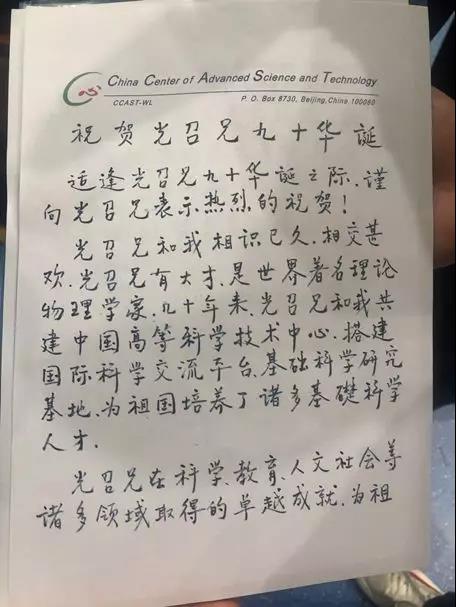 China Center of Advanced Science and Technology
CCAST-WL P. O. Box 8730, Beijing, China 100080
祝贺光召兄九十华诞
适逢光召兄九十华诞之际,谨
向光召兄表示热烈的祝贺!
光召兄和我相识已久,相交甚
欢。光召兄有大才,是世界著名理论
物理学家。几十年来,光召兄和我共
建中国高等科学技术中心,搭建
国际科学交流平台、基础科学研究
基地,为祖国培养了诸多基礎科学
人才。
光召兄在科学、教育、人文社会等
诸多领域取得的卓越成就,为祖